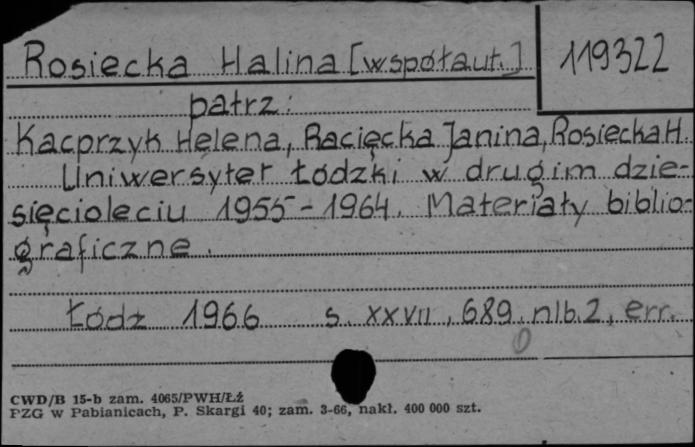 Rosiecka Halina [współaut.]
119322
patrz:
Kacprzyk Helena, Racięcka Janina, Rosiecka H.
Uniwersytet Łódzki w drugim dzie-
sięcioleciu 1955-1964. Materiały biblio-
graficzne.
Łódź 1966 s. XXVII, 689, nlb. 2, err.
0
CWD/B 15-b zam. 4065/PWH/Łź
PZG w Pabianicach, P. Skargi 40; zam. 3-66, nakł. 400 000 szt.